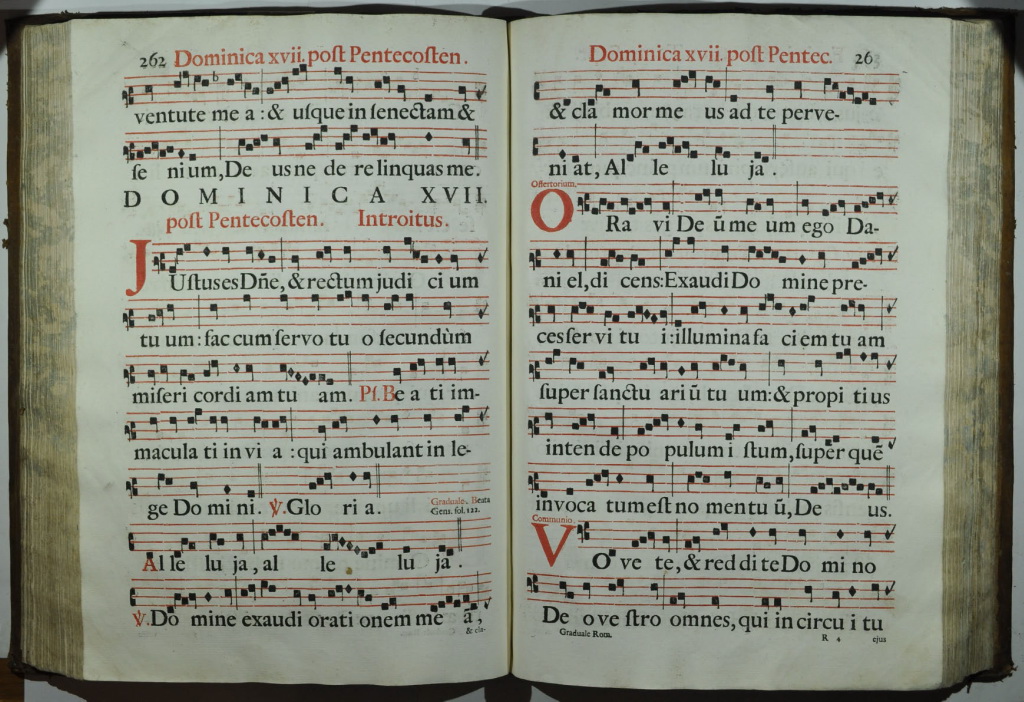 262 Dominica xvii. poſt Pentecoſten.
ventute me a : & uſque in ſenectam &
ſe ni um, De us ne de re linquas me.
DOMINICA XVII.
poſt Pentecoſten. Introitus.
JUſtus es Dñe, & rectum judi ci um
tu um : fac cum ſervo tu o ſecundùm
miſeri cordi am tu am. Pſ. Be a ti im-
macula ti in vi a : qui ambulant in le-
ge Do mi ni. ℣. Glo ri a.
Graduale. Beata
Gens. fol. 122.
Al le lu ja, al le lu ja.
℣. Do mine exaudi orati onem me ā,
& cla-
Dominica xvii. poſt Pentec. 263
& cla mor me us ad te perve-
ni at, Al le lu ja.
Offertorium.
ORa vi De ũ me um ego Da-
ni el, di cens: Exaudi Do mine pre-
ces ſer vi tu i: illumina fa ci em tu am
ſuper ſanctu ari ũ tu um: & propi ti us
inten de po pulum i ſtum, ſuper quẽ
invoca tum eſt no men tu ũ, De us.
Communio.
VO ve te, & red di te Do mi no
De o ve ſtro omnes, qui in circu i tu
Graduale Rom. R 4 ejus